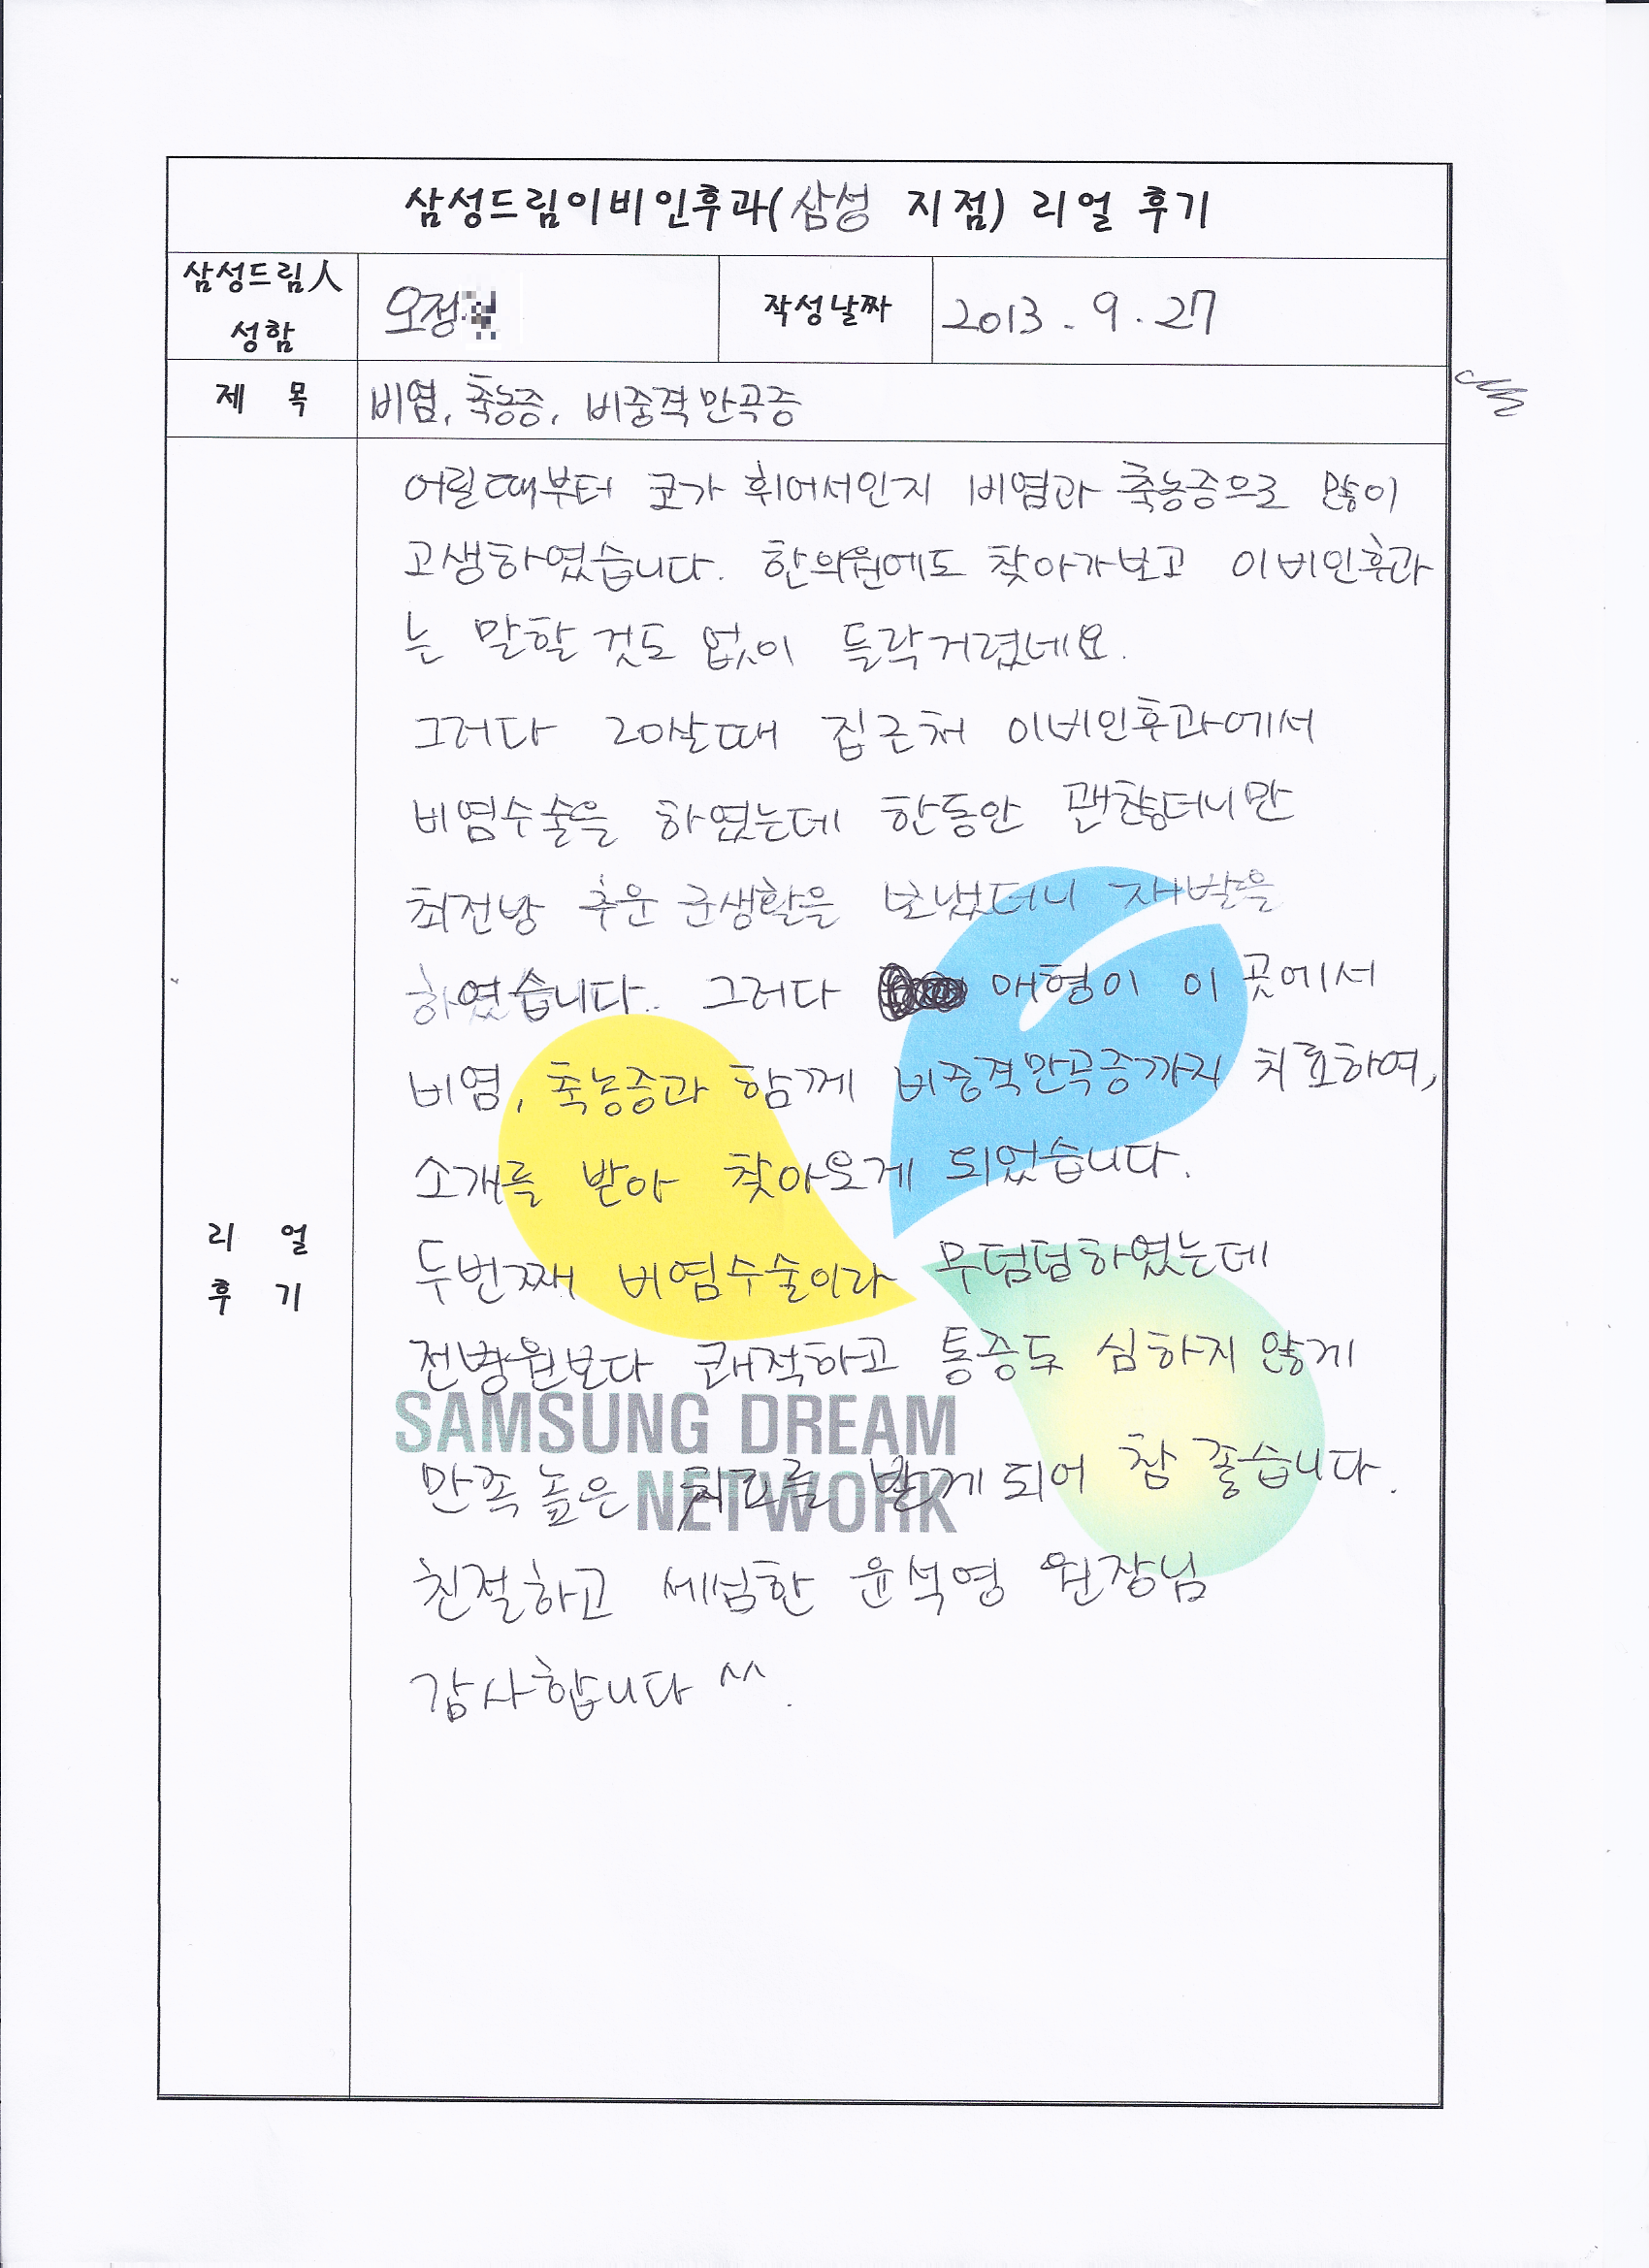 삼성드림이비인후과(삼성 지점) 리얼 후기
삼성드림人
성함
오정
작성날짜
2013. 9. 27
제 목
비염, 축농증, 비중격만곡증
어릴때부터 코가 휘어서인지 비염과 축농증으로 많이
고생하였습니다. 한의원에도 찾아가보고 이비인후과
는 말할것도 없이 들락거렸네요.
그러다 20살때 집근처 이비인후과에서
비염수술을 하였는데 한동안 괜찮더니만
최전방 추운 군생활을 보냈더니 재발을
하였습니다.. 그러다 매형이 이 곳에서
비염, 축농증과 함께 비중격만곡증까지 치료하여,
소개를 받아 찾아오게 되었습니다.
두번째 비염수술이라 무덤덤하였는데
전병원보다 쾌적하고 통증도 심하지 않게
SAMSUNG DREAM
만족높은 치료를 받게되어 참 좋습니다.
NETWORK
친절하고 세심한 윤석영 원장님
감사합니다 ^^.
리 얼
후 기